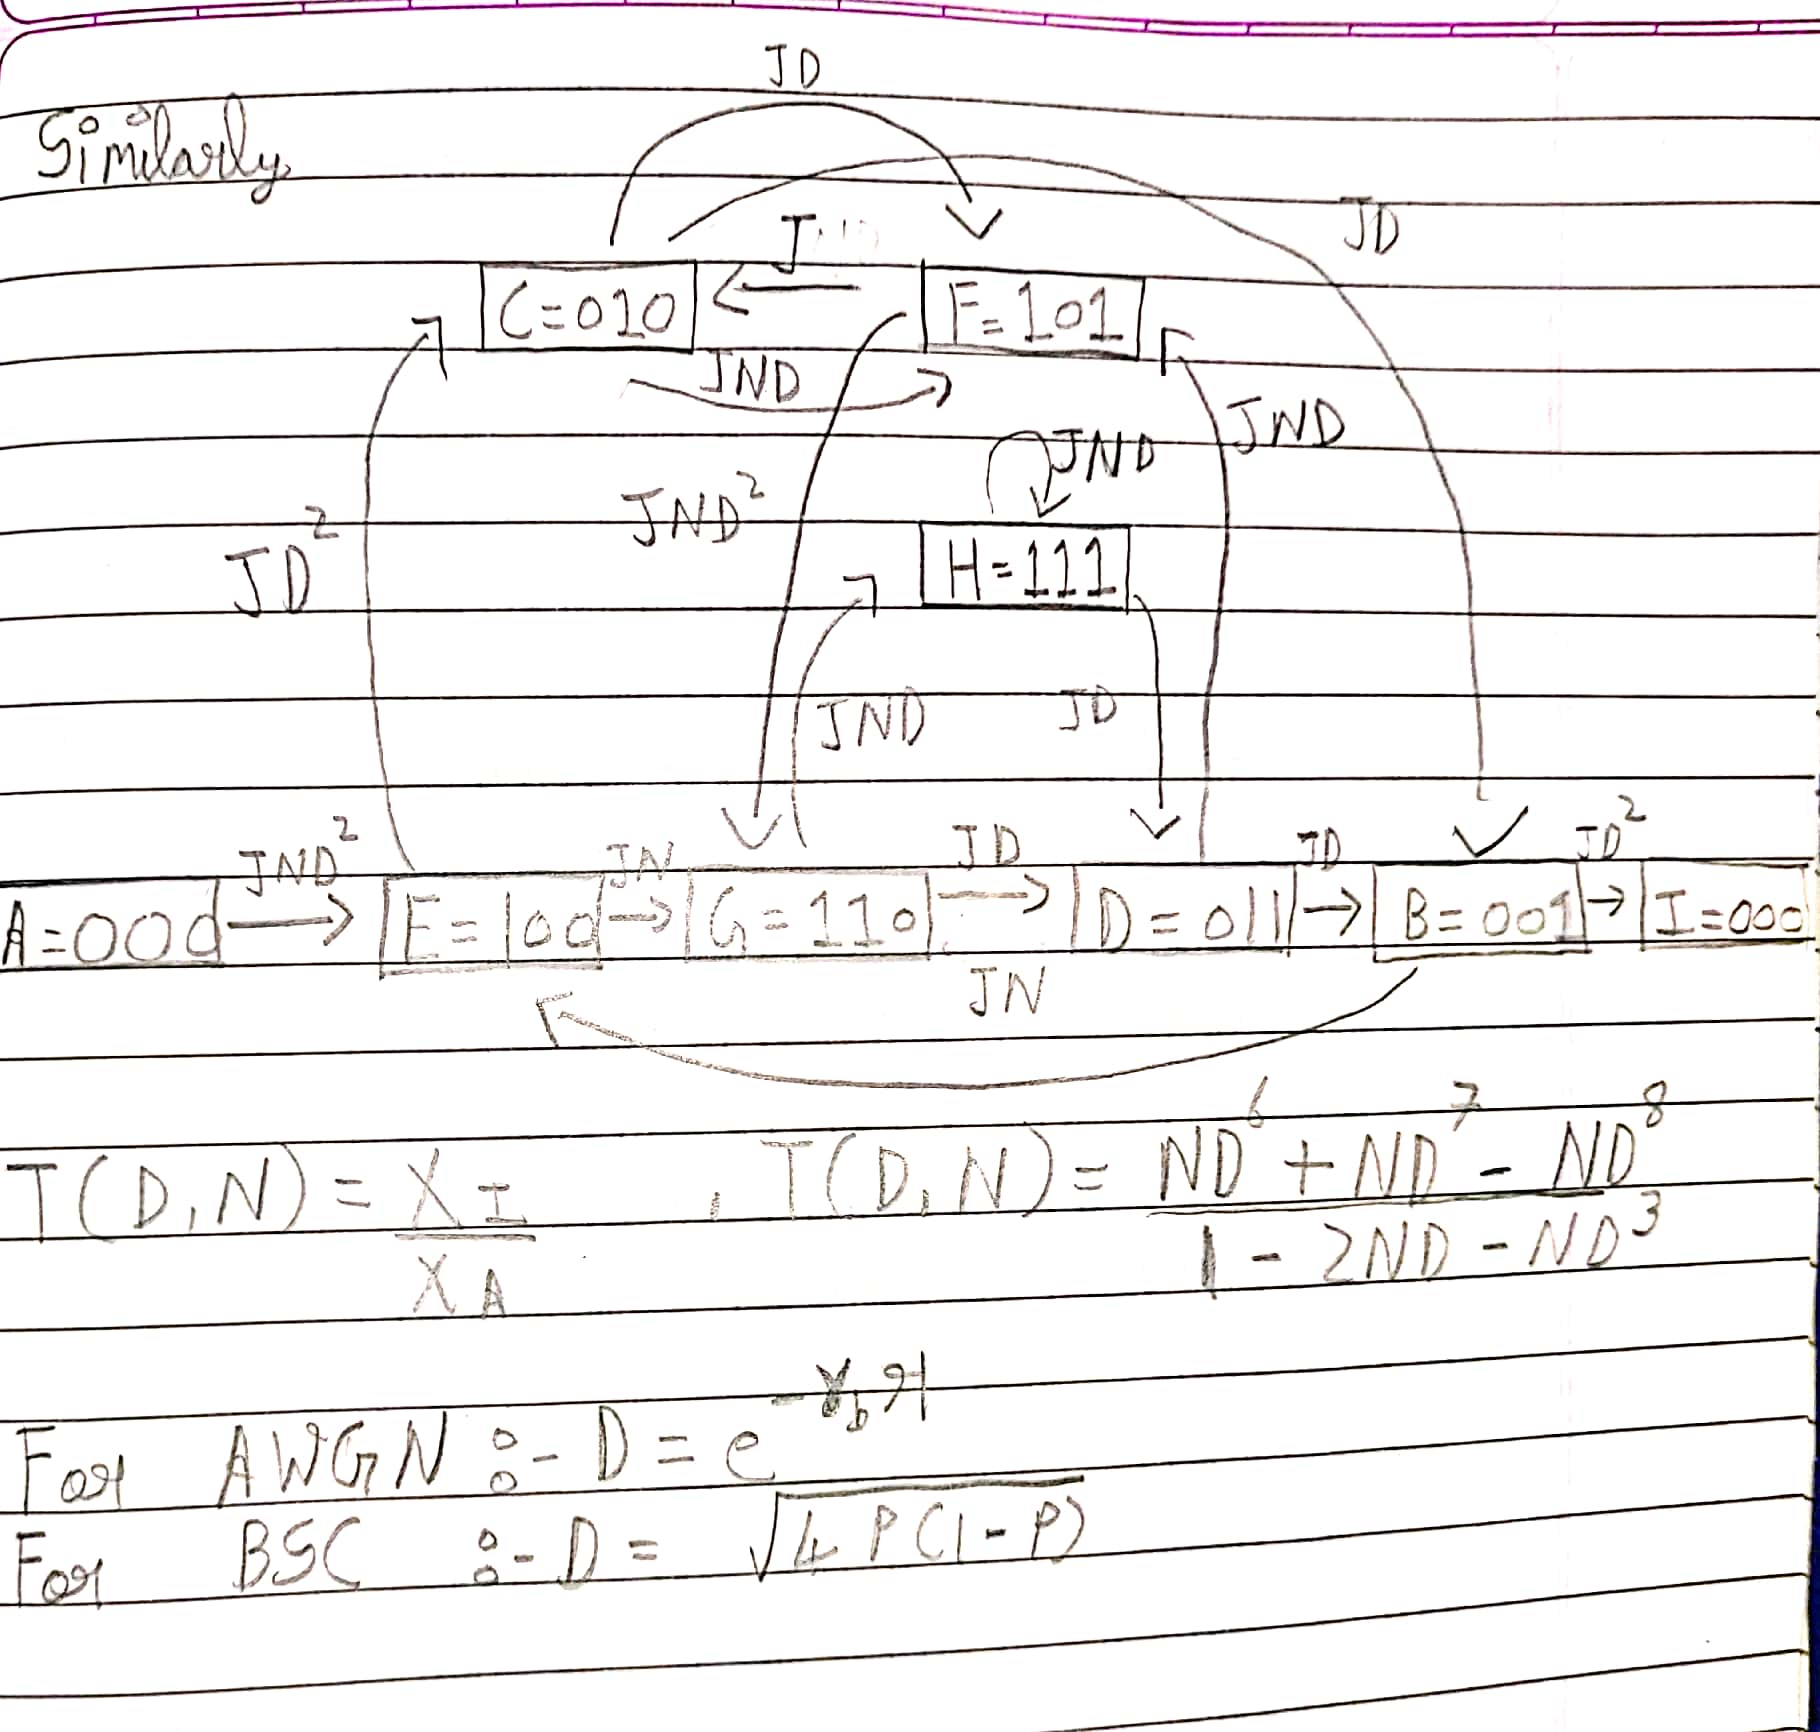 JD
Similarly
JD
J
C=010
F=101
JND
JND
JND
JND²
JD²
H=111
JND
JD
JND²
JN
JD
JD
JD²
A=000
E=100
G=110
D=011
B=001
I=000
JN
T(D,N) = X_I / X_A , T(D,N) = ND⁶ + ND⁷ - ND⁸ / 1 - 2ND - ND³
For AWGN :- D = e^(-γ_b r)
For BSC :- D = √4P(1-P)